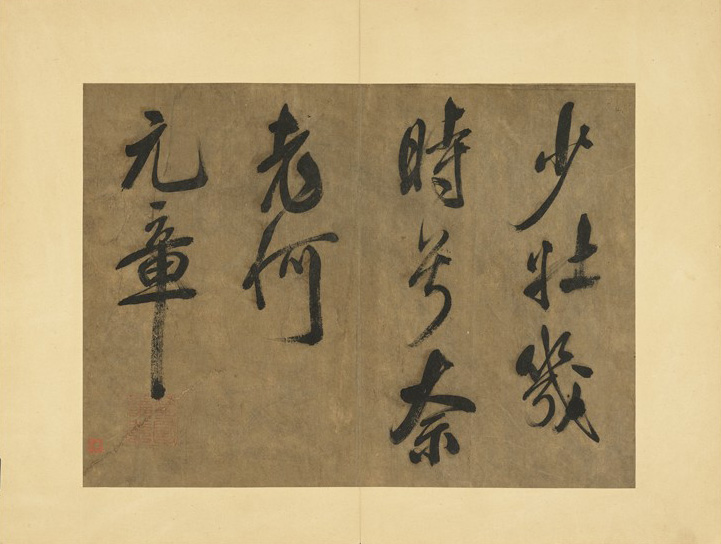 少壯幾
時兮奈
老何
元章